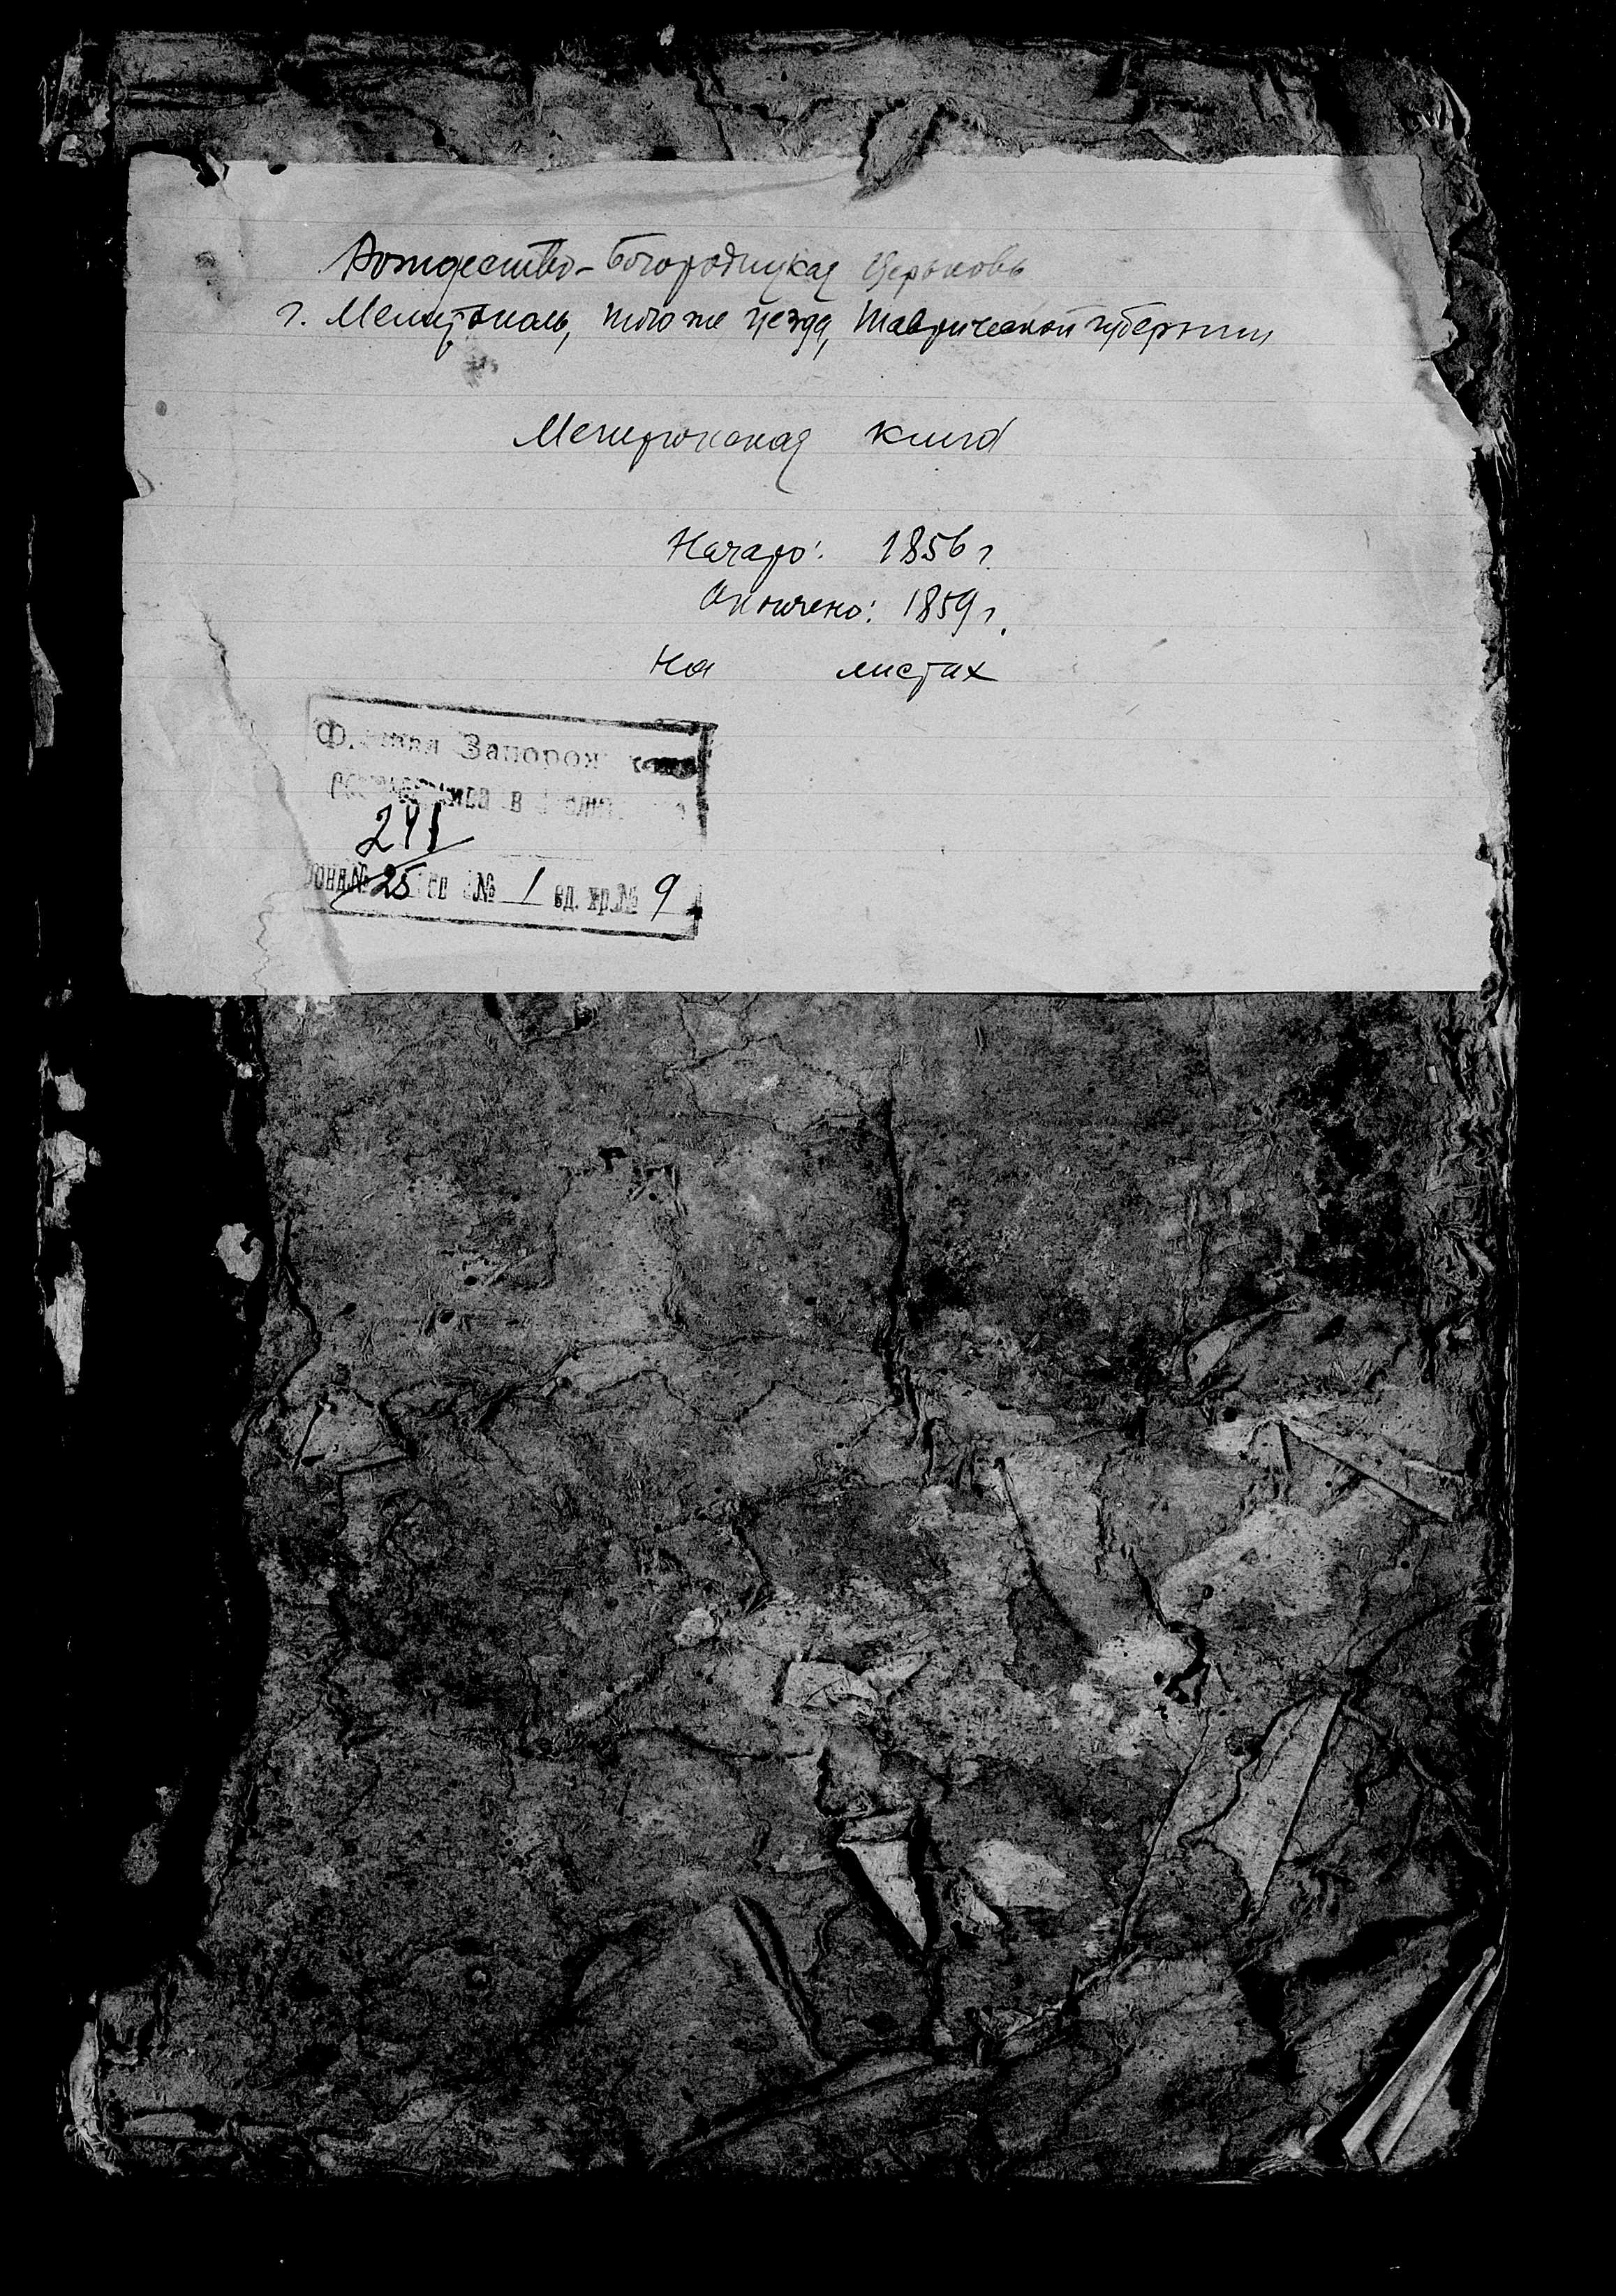 Рождество-Богородицкая Церковь
г. Мелитополь, того же уезда, Таврической губернии
Метрическая книга
Начато: 1856 г.
Окончено: 1859 г.
На листах
Запорож
в
241
25 № 1 ед. хр. № 9